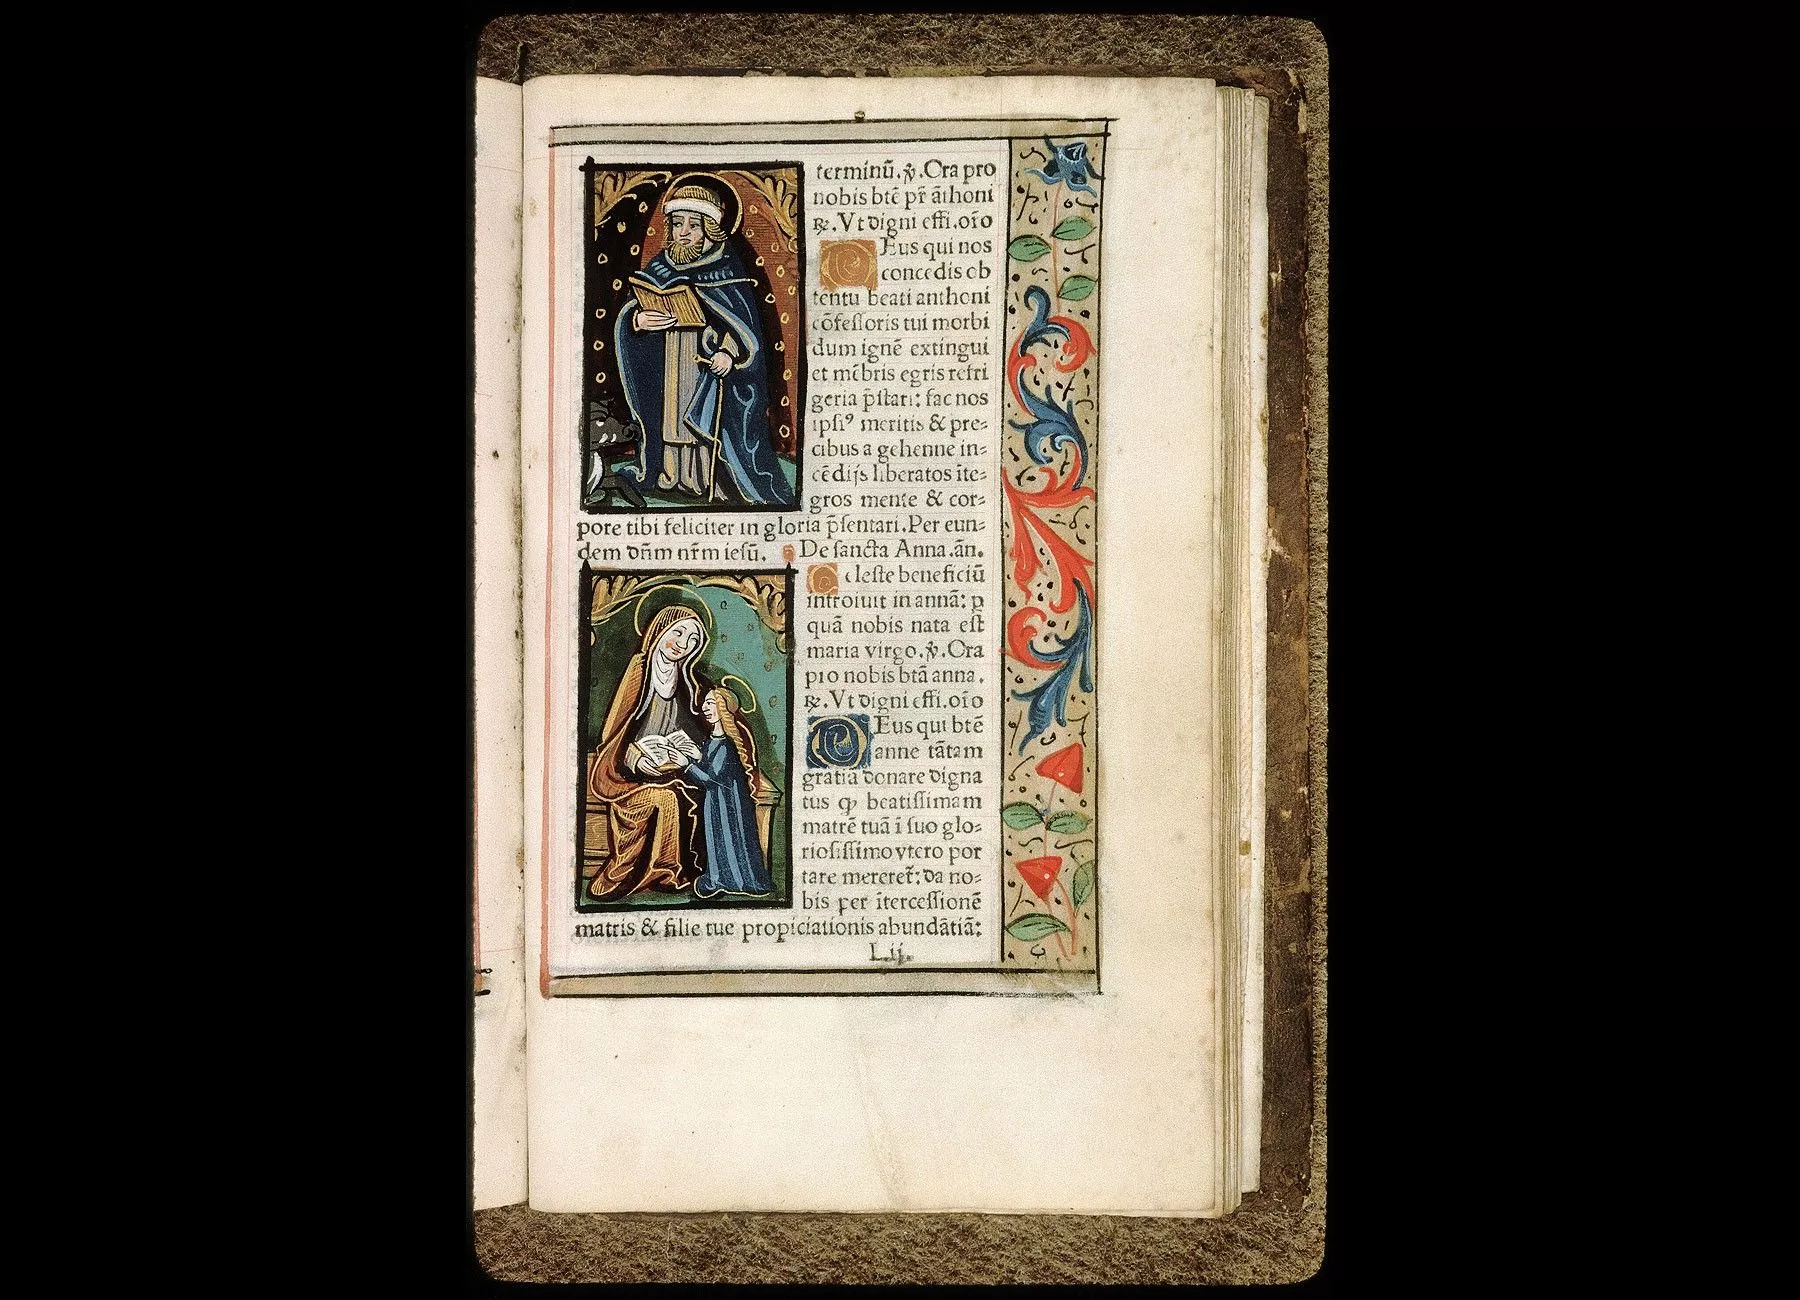 terminū. ℣. Ora pro
nobis btē pr̄ āthoni
℟. Vt digni effi. oīo
DEus qui nos
concedis ob
tentu beati anthoni
cōfessoris tui morbi
dum ignē extingui
et mēbris egris refri
geria p̄stari: fac nos
ipsiꝰ meritis & pre-
cibus a gehenne in-
cēdijs liberatos īte-
gros mente & cor-
pore tibi feliciter in gloria p̄sentari. Per eun-
dem dn̄m nr̄m iesū. De sancta Anna. an̄.
Celeste beneficiū
introiuit in annā: ꝑ
quā nobis nata est
maria virgo. ℣. Ora
pro nobis btā anna.
℟. Vt digni effi. oīo
DEus qui btē
anne tātam
gratiā donare digna
tus ꝙ beatissimam
matrē tuā ī suo glo-
riosissimo vtero por
tare mereret̄: da no-
bis per ītercessionē
matris & filie tue propiciationis abundātiā:
L.ij.